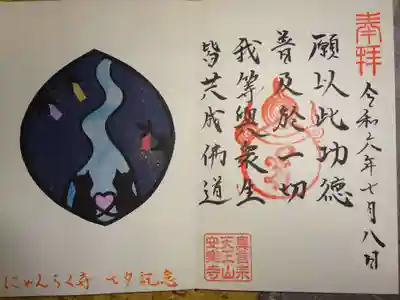 奉拝
令和六年七月八日
願以此功徳
普及於一切
我等與衆生
皆共成佛道
真言宗
天上山
安養寺
にゃんらく寺 七夕記念